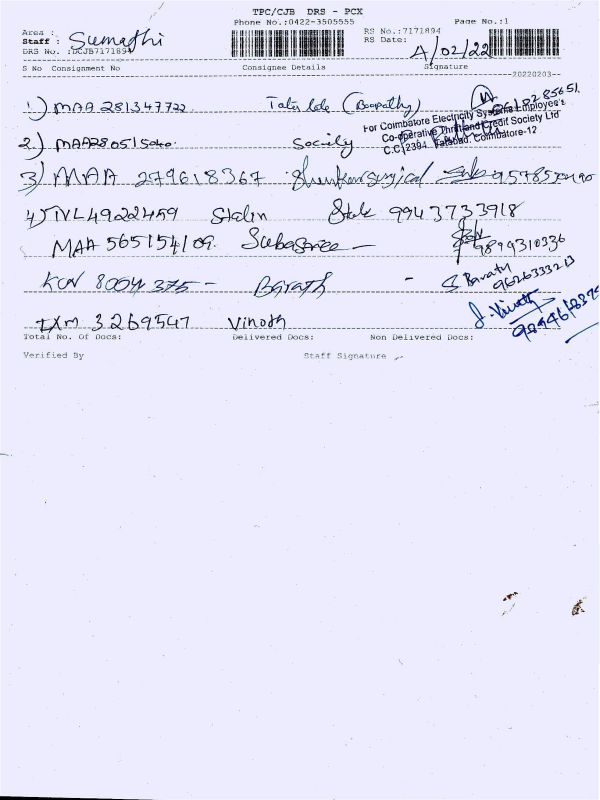 TPC/CJB DRS - PCX
Phone No.:0422-3505555 Page No.:1
Area :
Staff : Sumathi
RS No.:7171894
RS Date: 4/02/22
DRS No. :DCJB7171894
S No Consignment No Consignee Details Signature
20220203--
1) MAA 281347722 Tata (Boopathy)
For Coimbatore Electricity Systems Employee's
Co-operative Thrift and Credit Society Ltd
C.C.2394, Tatabad, Coimbatore-12
2) MAA280515040 Society
3) MAA 279618367
4) IVL4922459 Stalin 9943733918
MAA 565154109. Subasree - 9899310336
KCN 8004 375 - Barath - S Barath
9626333213
IXM 3269547 Vinoth J. Vinoth
Total No. Of Docs: Delivered Docs: Non Delivered Docs:
Verified By Staff Signature